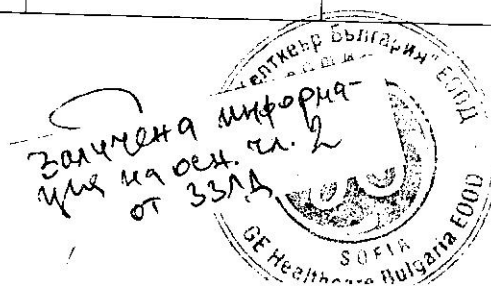 Заличена информа-
ция на осн. чл. 2
от ЗЗЛД
България" ЕООД
SOFIA
GE Healthcare Bulgaria EOOD